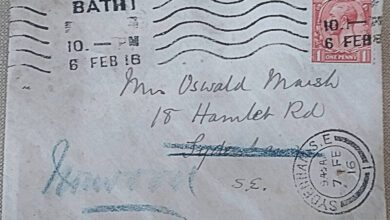 BATH
10.— PM
6 FEB 16
10.—
6 FEB
ONE PENNY
Mrs Oswald Marsh
18 Hamlet Rd
Sydenham
S.E.
SYDENHAM S.E
7 FE
16